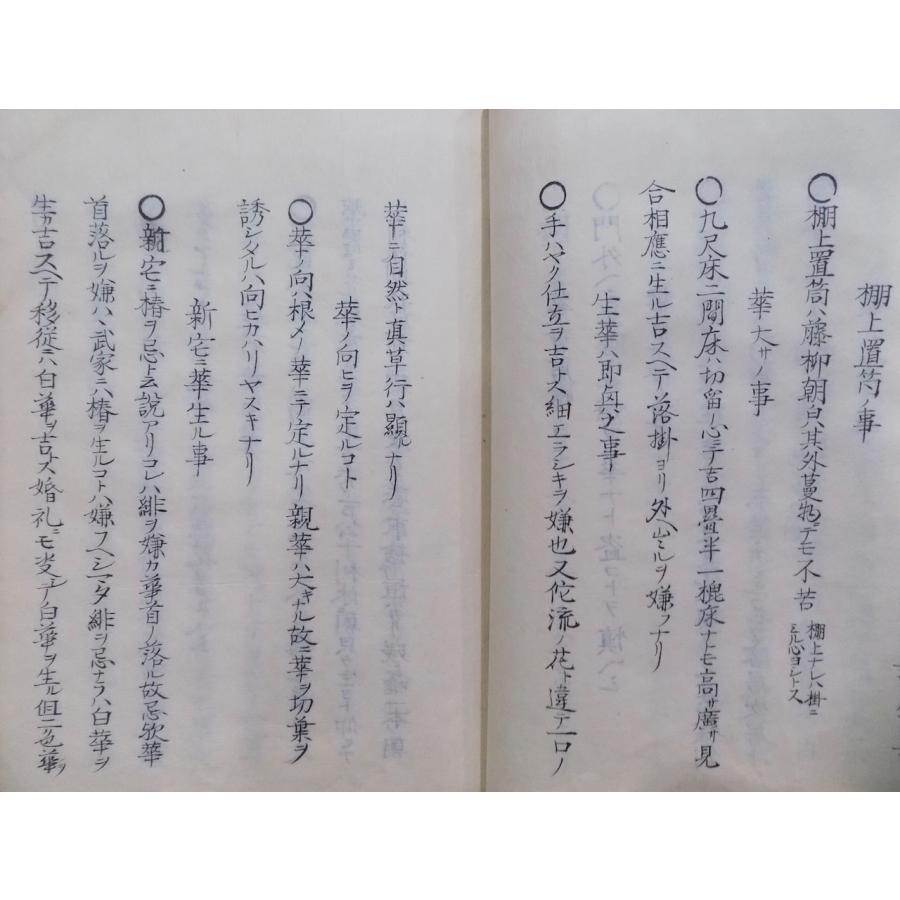 棚上置筒ノ事
〇棚上置筒ハ藤柳朝㒵其外蔓物ニテモ不苦 棚上ナレハ掛ニ
ミル心ヨシトス
華大サノ事
〇九尺床二間床ハ切留ノ心ニテ吉四畳半一梍床ナトモ高サ廣サ見
合相應ニ生ル吉スヘテ落掛ヨリ外ヘ出ミルヲ嫌フナリ
生華ハ即興之事
〇手ハヤク仕立ヲ吉トス細工ラシキヲ嫌也又佗流ノ花ト違テ一口ノ
華ニ自然ト真草行ハ顕ルナリ
華ノ向ヒヲ定ルコト
〇華ノ向ハ根〆ノ華ニテ定ルナリ親華ハ大キナル故ニ華ヲ切葉ヲ
誘シメルハ向ヒカハリヤスキナリ
新宅ニ華生ル事
〇新宅ニ椿ヲ忌ト云説アリコレハ緋ヲ嫌カ華首ノ落ル故忌欤華
首落ルヲ嫌ハヽ武家ニハ椿ヲ生ルコトハ嫌フヘシマタ緋ヲ忌ナラハ白華ヲ
生テ吉スヘテ移徙ニハ白華ヲ吉トス婚礼ニテモ定テ白華ヲ生ル但二色華ヲ